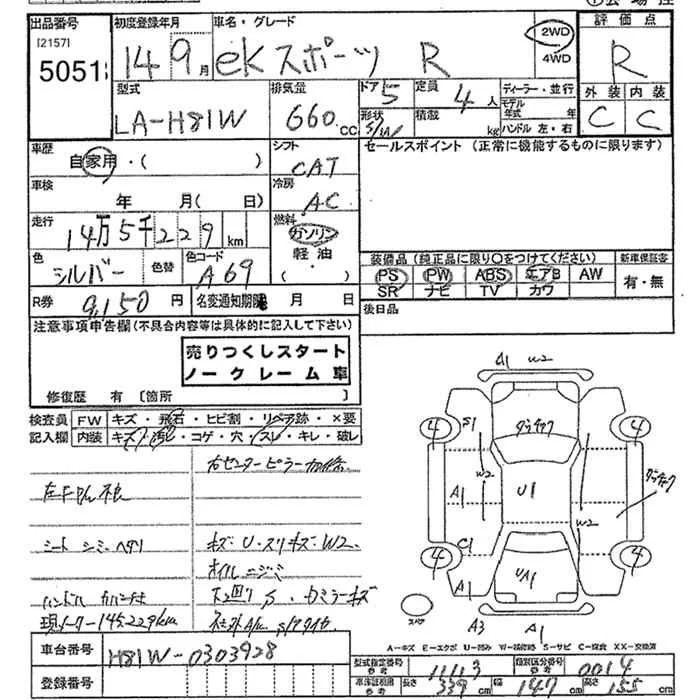 出品番号
[2157]
5051
初度登録年月
14 9月
車名・グレード
eKスポーツ R
2WD
4WD
評価点
R
外装 内装
C C
型式
LA-H81W
排気量
660 CC
ドア 5
形状 S/W
定員 4 人
積載 kg
ディーラー・並行
モデル年式 年
ハンドル 左・右
車歴
自家用・( )
シフト
CAT
セールスポイント (正常に機能するものに限ります)
車検
年 月(日)
冷房
AC
走行
14万5千229 km
燃料
ガソリン
軽油
( )
色
シルバー
色替
色コード
A69
装備品(純正品に限り○をつけてください)
新車保証書
PS PW ABS エアB AW
SR ナビ TV カワ
有・無
R券
9,150 円
名変通知期限 月 日
後日品
注意事項申告欄(不具合内容等は具体的に記入して下さい)
売りつくしスタート
ノークレーム車
修復歴 有 [箇所 ]
検査員
記入欄
FW キズ・飛石・ヒビ割・リペア跡・×要
内装 キズ・汚れ・コゲ・穴・スレ・キレ・破レ
右センターピラー
左
不良
シート シミ ヘタリ
キズ・U・スリキズ・W2.
オイルニジミ
ハンドル
下回り S.
現メーター145,229km
A1 W2
S1
4 4
W2
A1
U1
W2
C1
4 4
A1
UA1
スペア
A3 A1
A=キズ E=エクボ U=凹み W=補修跡 S=サビ C=腐食 XX=交換済
車台番号
H81W-0303928
登録番号
型式指定番号
参考
11113
類別区分番号
参考
0014
車庫証明用
参考
長さ 339 cm 幅 147 cm 高さ 155 cm